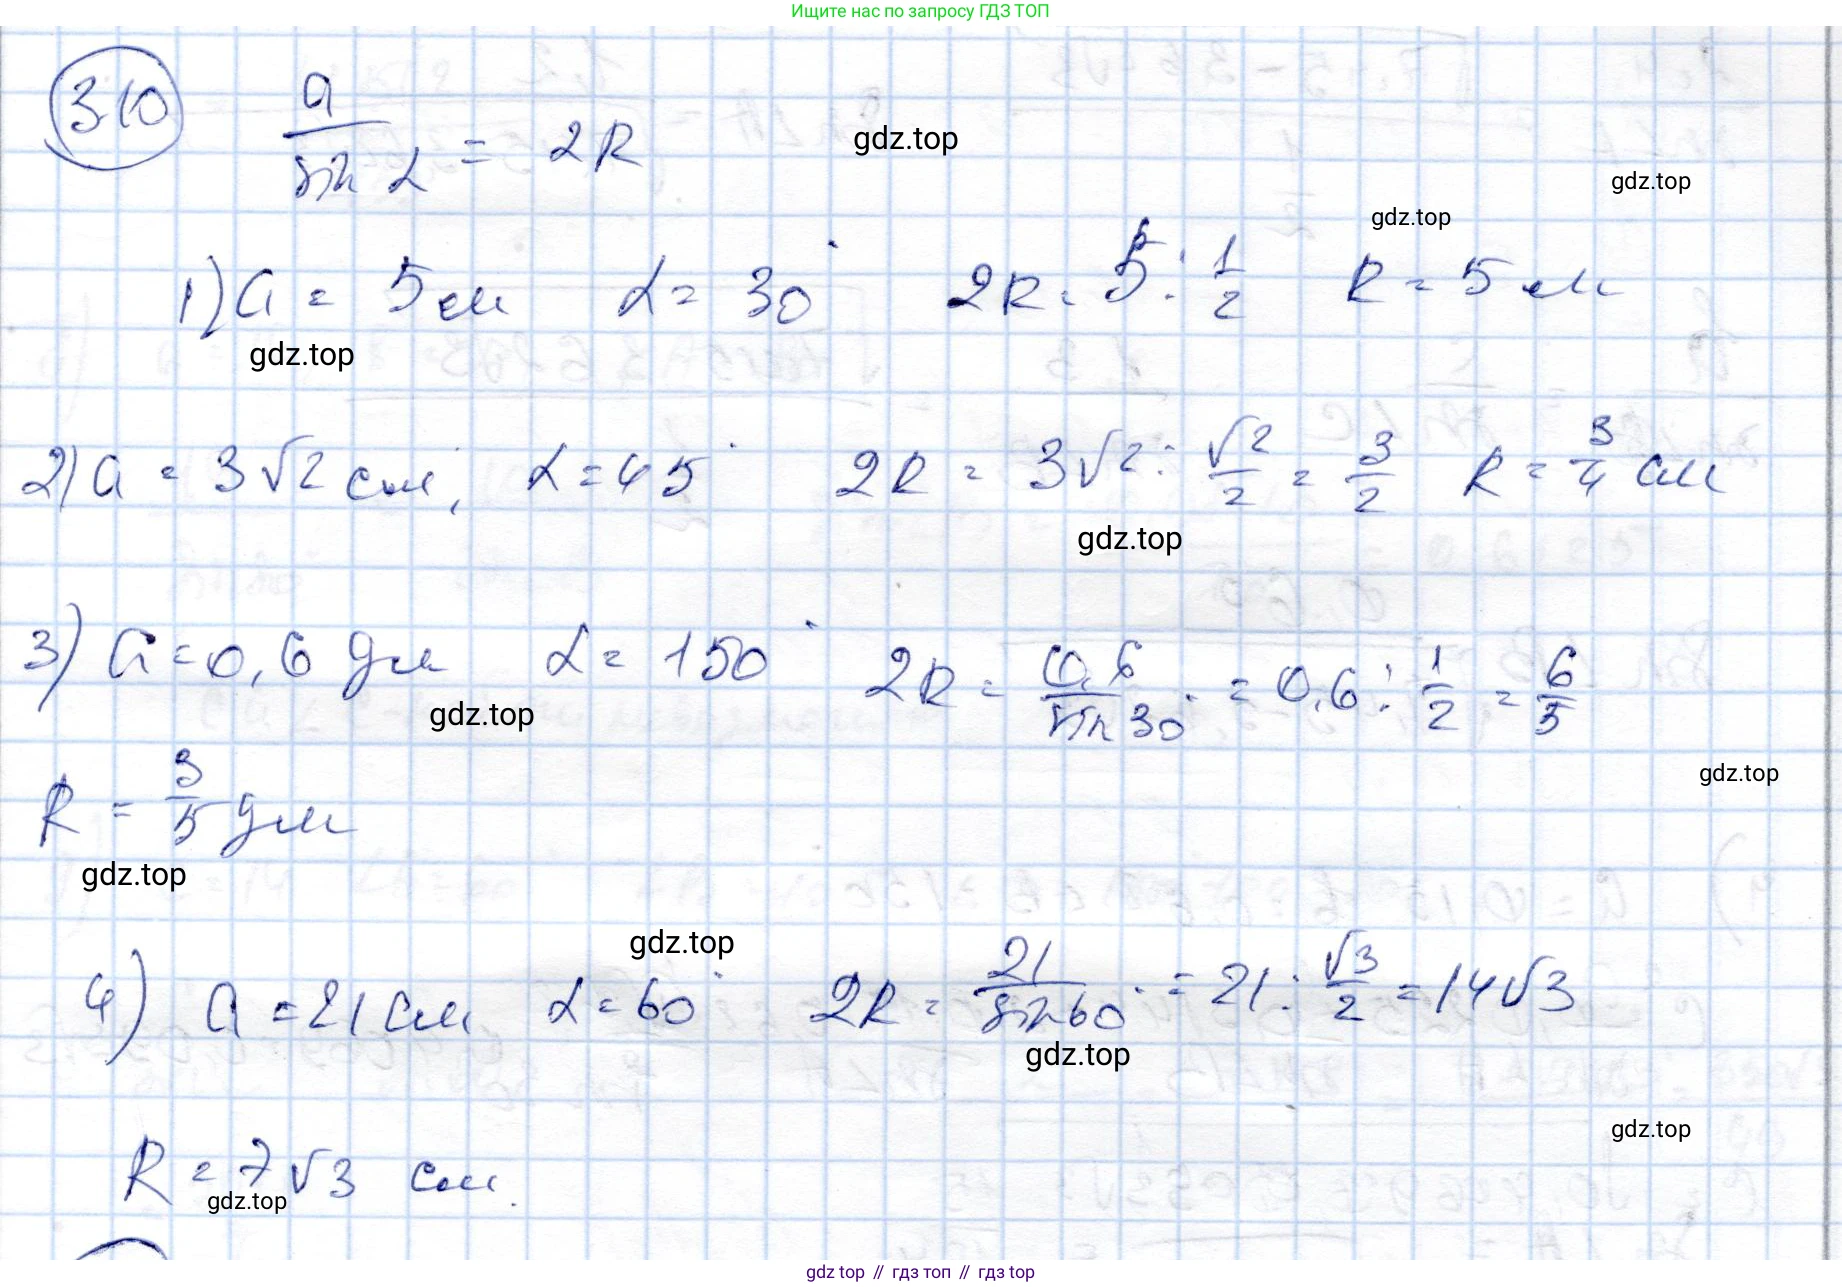 Ищите нас по запросу ГДЗ ТОП
310 a/sin α = 2R
gdz.top
gdz.top
gdz.top
1) a = 5 см α = 30° 2R = 5 : 1/2 R = 5 см
gdz.top
2) a = 3√2 см, α = 45° 2R = 3√2 : √2/2 = 3/2 R = 3/4 см
gdz.top
3) a = 0,6 дм α = 150° 2R = 0,6/sin 30° = 0,6 : 1/2 = 6/5
gdz.top
gdz.top
R = 3/5 дм
gdz.top
gdz.top
4) a = 21 см α = 60° 2R = 21/sin 60° = 21 : √3/2 = 14√3
gdz.top
gdz.top
R = 7√3 см.
gdz.top
gdz top // гдз топ // гдз top